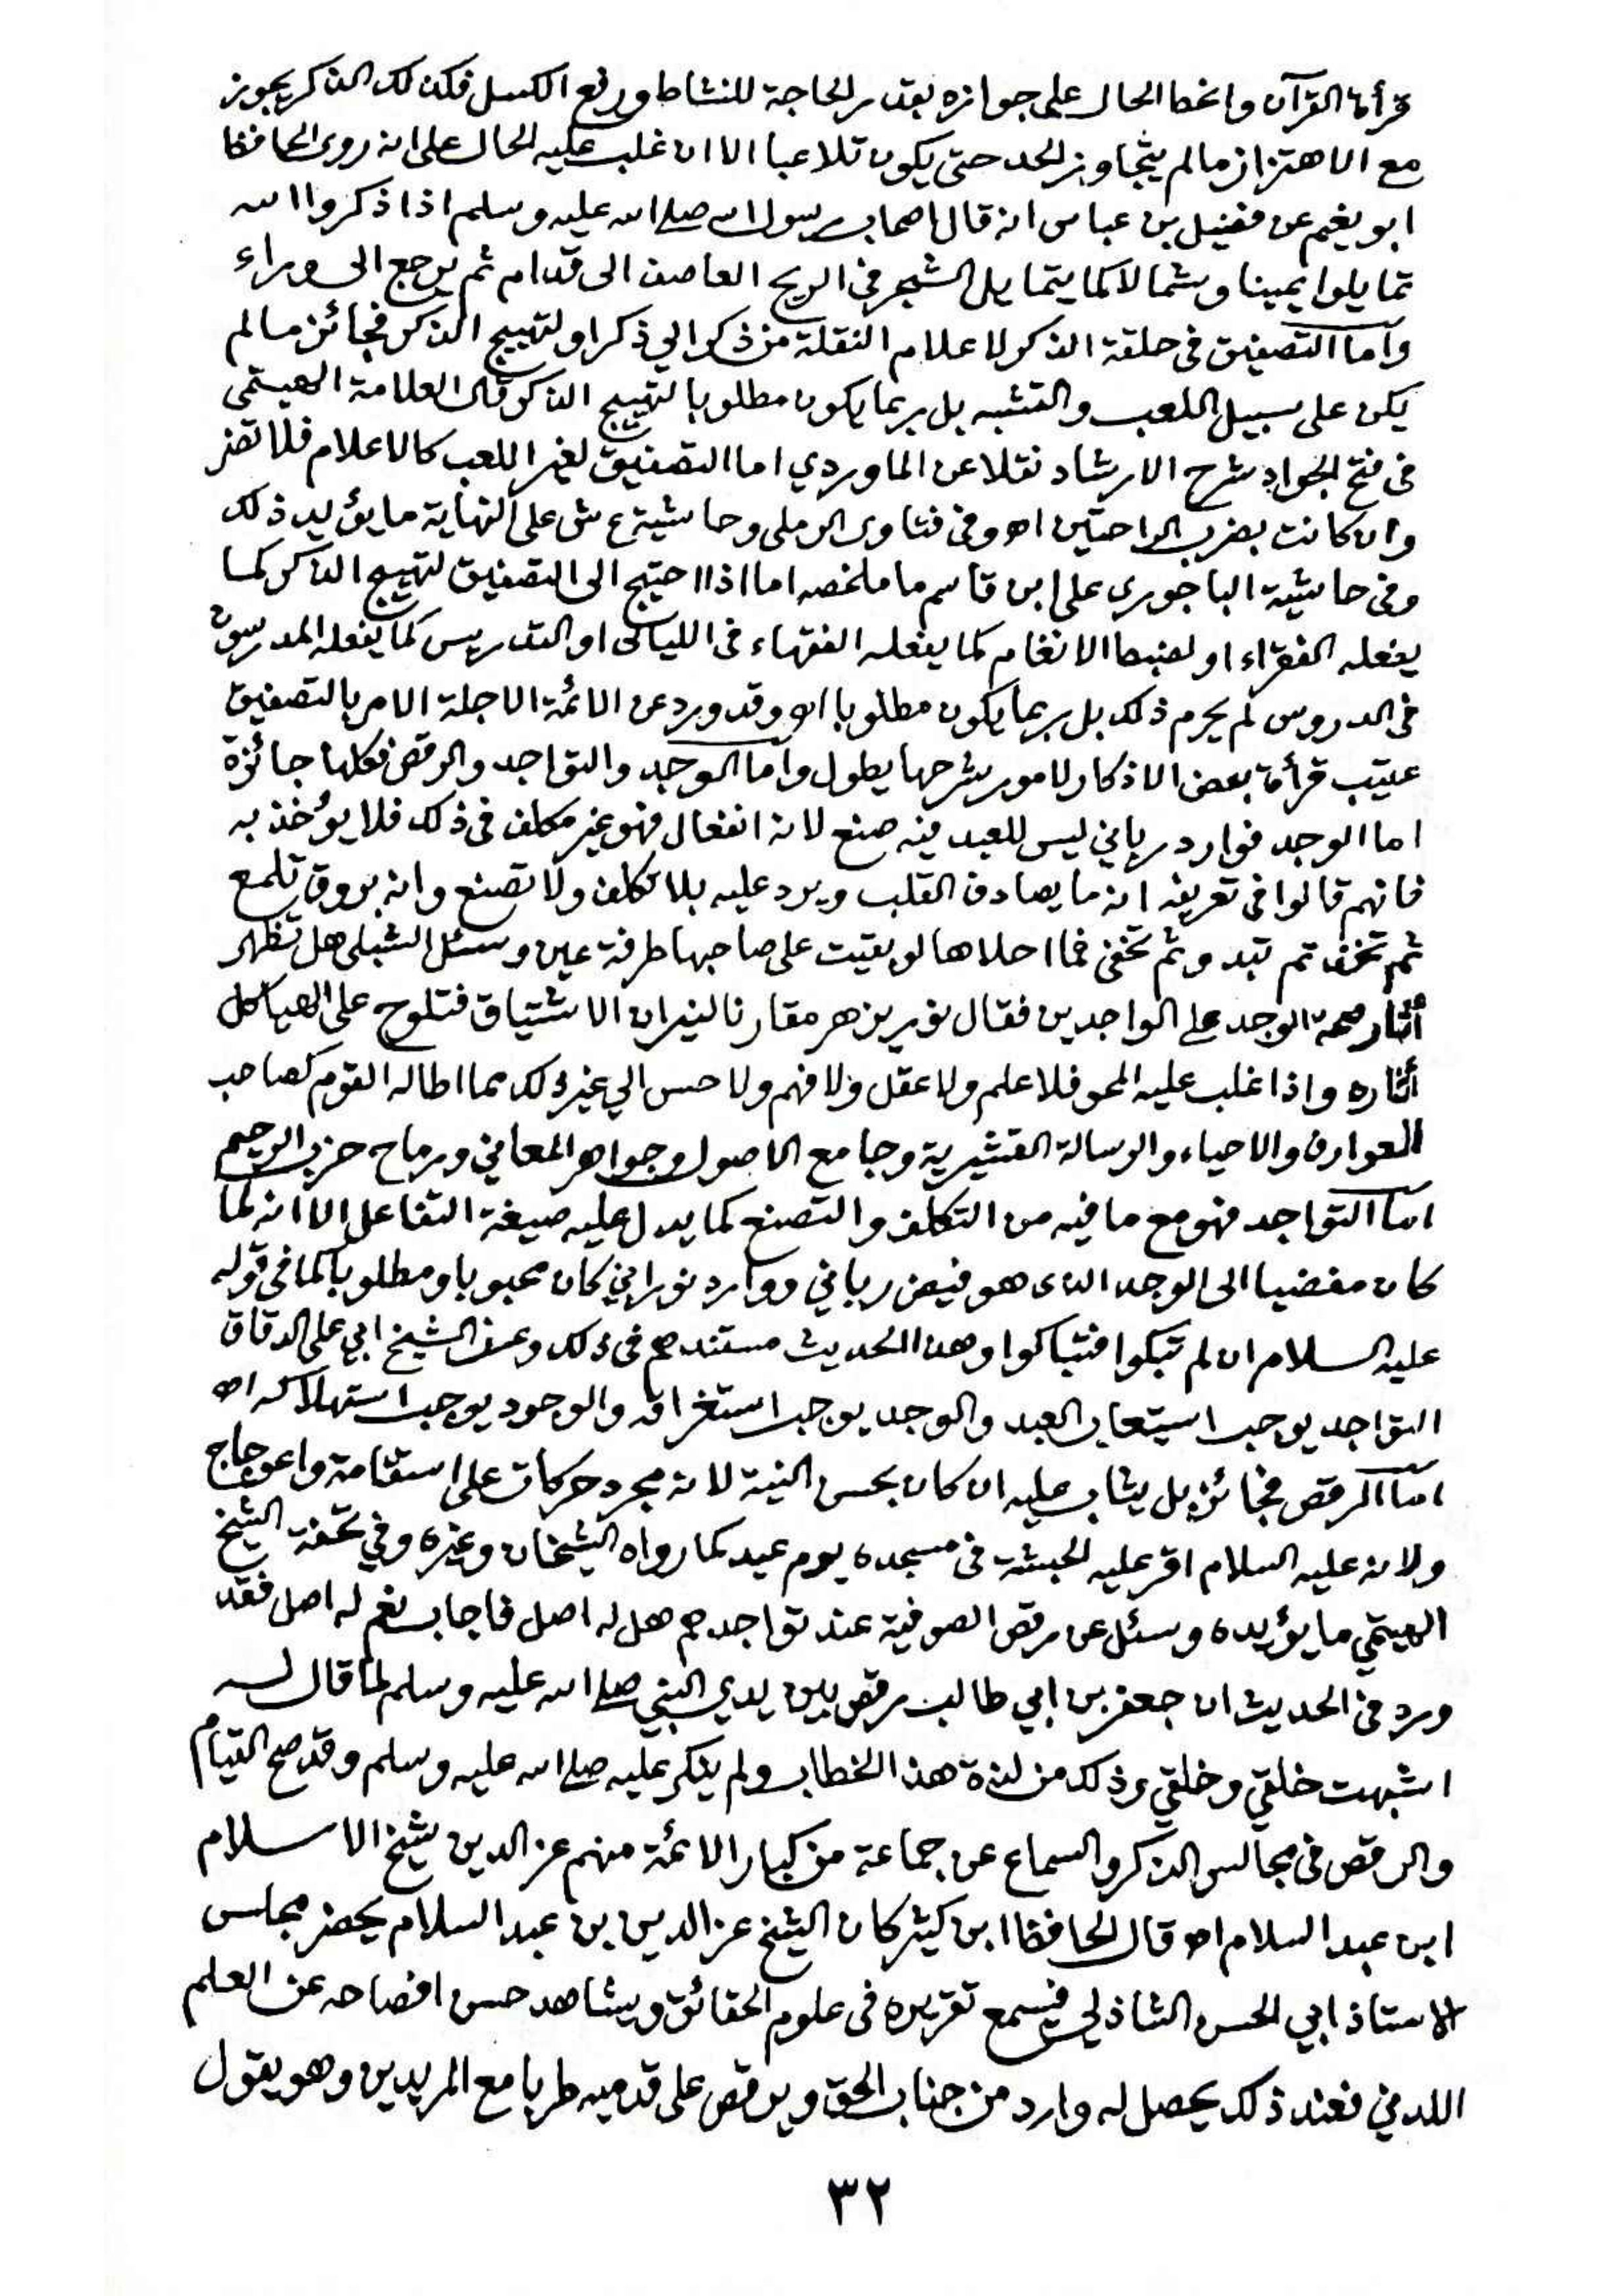 قرأة القرآن وانحط الحال على جوازه بقدر الحاجة للنشاط ورفع الكسل فكذلك الذكر يجوز
مع الاهتزاز مالم يتجاوز الحد حتى يكون تلاعبا الا ان غلب عليه الحال على انه روى الحافظ
ابو نعيم عن فضيل بن عباس انه قال اصحاب رسول الله صلى الله عليه وسلم اذا ذكروا الله
تمايلوا يمينا وشمالا كما يتمايل الشجر في الريح العاصف الى قدام ثم يرجع الى وراء
وأما التصفيق في حلقة الذكر لاعلام النقلة من ذكر الي ذكر او لتهييج الذكر فجائز مالم
يكن على سبيل اللعب والتشبه بل ربما يكون مطلوبا لتهييج الذكر قال العلامة الهيتمي
في فتح الجواد شرح الارشاد نقلا عن الماوردي اما التصفيق لغير اللعب كالاعلام فلا تضر
وان كانت بضرب الراحتين اه وفي فتاوى الرملى وحاشية ع ش على النهاية ما يؤيد ذلك
وفي حاشية الباجوري على ابن قاسم ما ملخصه اما اذا احتيج الى التصفيق لتهييج الذاكر كما
يفعله الفقراء او لضبط الانغام كما يفعله الفقهاء في الليالى او التدريس كما يفعله المدرسون
في الدروس لم يحرم ذلك بل ربما يكون مطلوبا اه وقد ورد عن الائمة الاجلة الامر بالتصفيق
عقيب قرأة بعض الاذكار لامور شرحها يطول وأما الوجد والتواجد والرقص فكلها جائزة
اما الوجد فوارد رباني ليس للعبد فيه صنع لانه انفعال فهو غير مكلف في ذلك فلا يؤخذ به
فانهم قالوا في تعريفه انه ما يصادف القلب ويرد عليه بلا تكلف ولا تصنع وانه بروق تلمع
ثم تخف ثم تبدو ثم تخفى فما احلاها لو بقيت على صاحبها طرفة عين وسئل الشبلى هل تظهر
أثار صحة الوجد على الواجدين فقال نور يزهر مقارنا لنيران الاشتياق فتلوح على الهياكل
أثاره واذا غلب عليه المحو فلا علم ولا عقل ولا فهم ولا حس الي غير ذلك مما اطاله القوم كصاحب
العوارف والاحياء والرسالة القشيرية وجامع الاصول وجواهر المعاني ورماح حزب الرحيم
اما التواجد فهو مع ما فيه من التكلف والتصنع كما يدل عليه صيغة التفاعل الا انه لما
كان مفضيا الى الوجد الذى هو فيض رباني ووارد نوراني كان محبوبا ومطلوبا كما في قوله
عليه السلام ان لم تبكوا فتباكوا وهذا الحديث مستندهم في ذلك وعن الشيخ ابي على الدقاق
التواجد يوجب استيعاب العبد والوجد يوجب استغراقه والوجود يوجب استهلاكه اه
اما الرقص فجائز بل يثاب عليه ان كان بحسن النية لانه مجرد حركات على استقامة واعوجاج
ولانه عليه السلام اقر عليه الحبشة في مسجده يوم عيد كما رواه الشيخان وغيره وفي تحفة الشيخ
الهيتمي ما يؤيده وسئل عن رقص الصوفية عند تواجدهم هل له اصل فاجاب نعم له اصل فقد
ورد في الحديث ان جعفر بن ابي طالب رقص بين يدي النبي صلى الله عليه وسلم لما قال له
اشبهت خلقي وخلقي وذلك من لذة هذا الخطاب ولم ينكر عليه صلى الله عليه وسلم وقد صح القيام
والرقص في مجالس الذكر والسماع عن جماعة من كبار الائمة منهم عز الدين شيخ الاسلام
ابن عبد السلام اه قال الحافظ ابن كثير كان الشيخ عز الدين بن عبد السلام يحضر مجلس
الاستاذ ابي الحسن الشاذلي فيسمع تقريره في علوم الحقائق ويشاهد حسن افصاحه عن العلم
اللدني فعند ذلك يحصل له وارد من جناب الحق ويرقص على قدميه طربا مع المريدين وهو يقول
٣٢